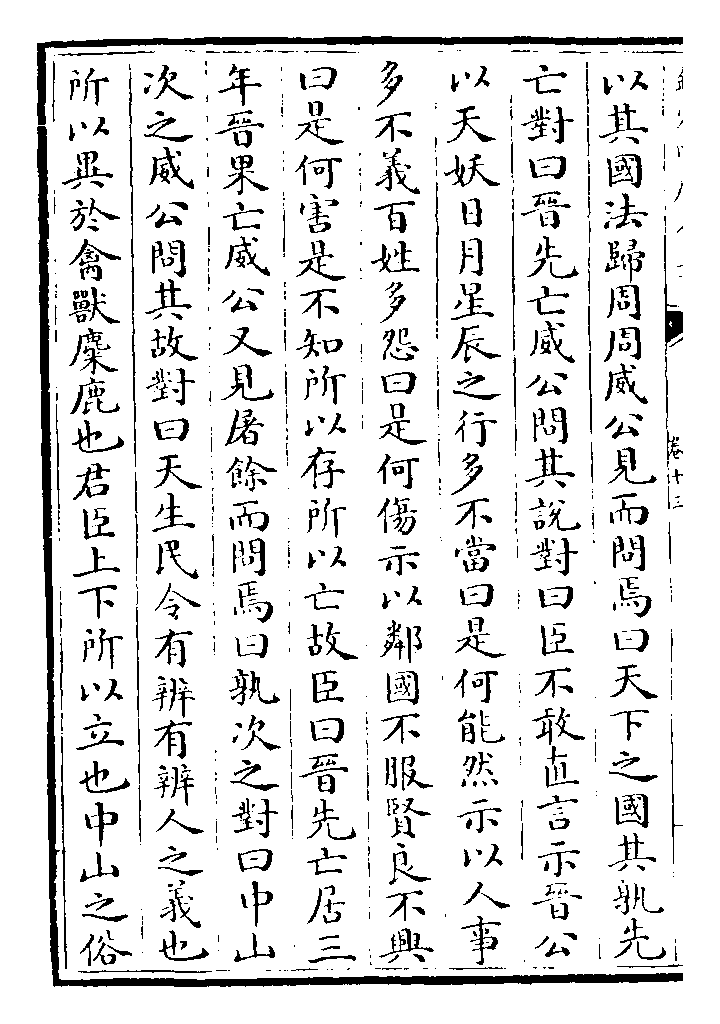 卷十三
以其國法歸周周威公見而問焉曰天下之國其孰先
亡對曰晉先亡威公問其說對曰臣不敢直言示晉公
以天妖日月星辰之行多不當曰是何能然示以人事
多不義百姓多怨曰是何傷示以鄰國不服賢良不興
曰是何害是不知所以存所以亡故臣曰晉先亡居三
年晉果亡威公又見屠餘而問焉曰孰次之對曰中山
次之威公問其故對曰天生民令有辨有辨人之義也
所以異於禽獸麋鹿也君臣上下所以立也中山之俗